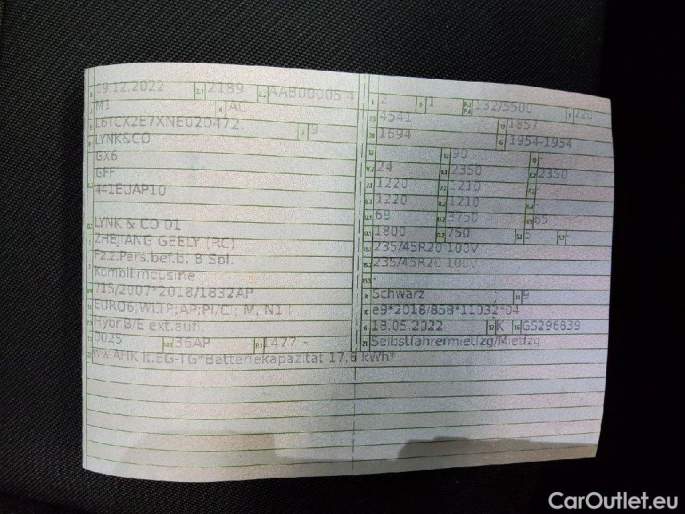 19.12.2022 2189 AAB00005 4
M1 AC
L6TCX2E7XNE020472 9
LYNK&CO
GX6
GFF
441EJAP10
LYNK & CO 01
ZHEJIANG GEELY (RC)
Fz.z.Pers.bef.b. 8 Spl.
Kombilimousine
715/2007*2018/1832AP
EURO6;WLTP;AP;PI/CI; M, N1 I
Hybr.B/E ext.aufl.
0025 36AP 1477 -
ww.AHK lt.EG-TG*Batteriekapazität 17,6 kWh*
2 1 132/5500 220
4541 1857
1694 1954-1954
90
24 2350 2350
1220 1210
1220 1210
69 3750 65
1800 750 5
235/45R20 100V
235/45R20 100V
-
Schwarz 9
e9*2018/858*11032*04
18.05.2022 K GS296839
Selbstfahrermietfzg/Mietfzg
CarOutlet.eu